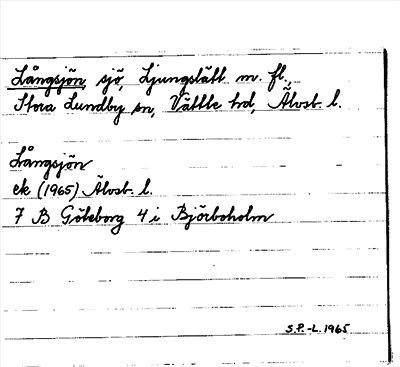 Långsjön, sjö, Ljungslätt m. fl.,
Stora Lundby sn, Vättle hd, Älvsb. l.
Långsjön
ek (1965) Älvsb. l.
7 B Göteborg 4 i Björboholm
S.P.-L. 1965